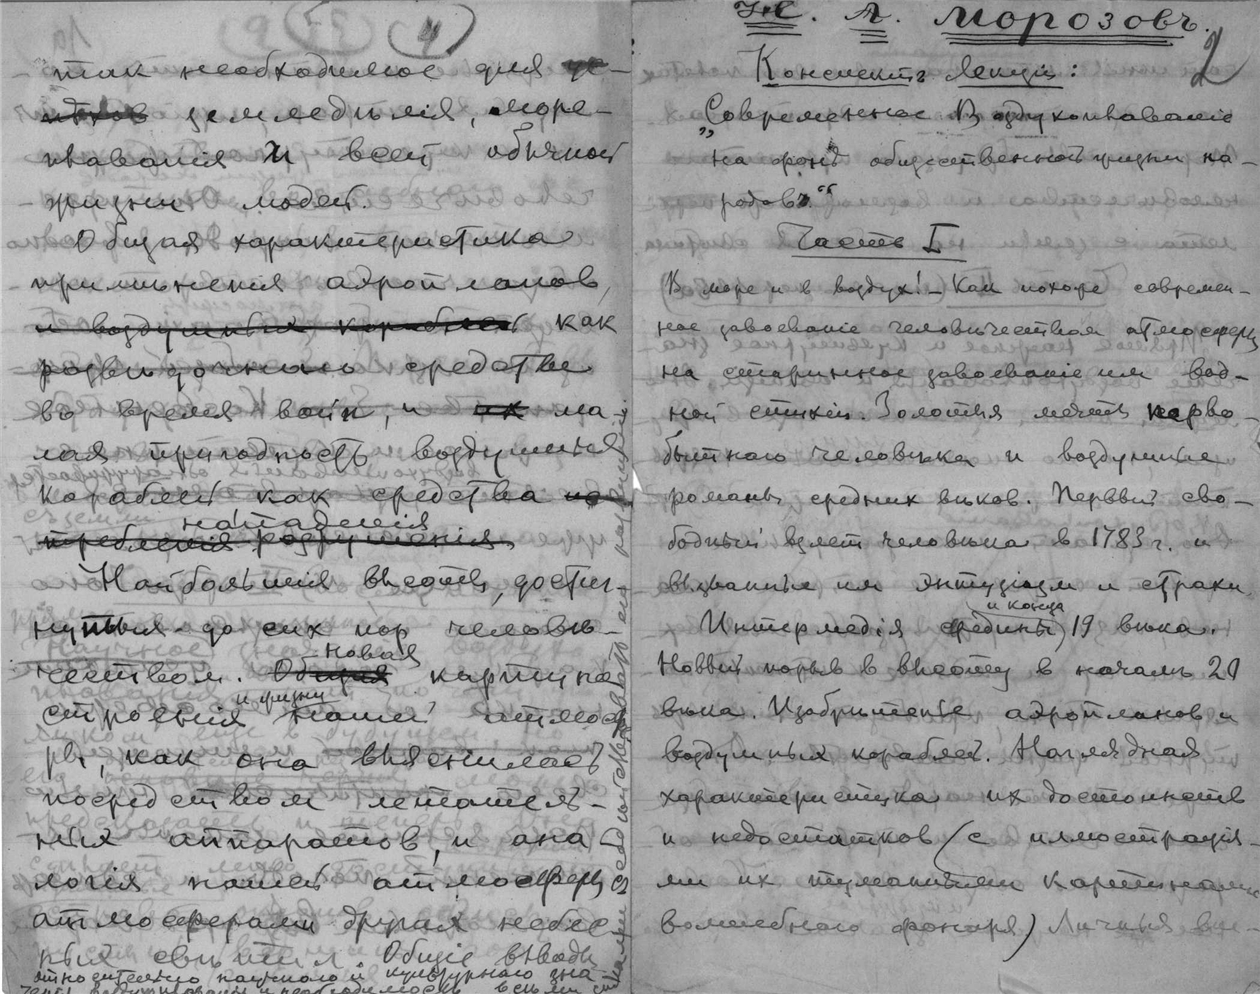 4
так необходимое для
земледѣлія, море-
плаванія и всей обычной
жизни людей.
Общая характеристика
примѣненія аэроплановъ,
и воздушныхъ кораблей какъ
развѣдочнаго средства
во время войн, и ма-
лая пригодность воздушныхъ
кораблей как средства
нападенія
требленія разрушенія.
Наибольшія высоты, достиг-
нутыя до сих пор человѣ-
новая
чеством. Общая картина
и жизни
строенія нашей атмосфе
ры, как она выяснилась
посредством летатель-
ных аппаратов, и ана
логія нашей атмосферы с
атмосферами других небес-
ных свѣтил. Общіе выводы
относительно научного и культурного зна-
2
Н. А. Морозовъ.
Конспектъ лекціи:
„Современное Воздухоплаваніе
на фонѣ общественной жизни на-
родов."
Часть I
В море и в воздух! – Как похоже современ-
ное завоеваніе человѣчеством атмосферы
на старинное завоеваніе им вод-
ной стихіи. Золотыя мечты перво-
бытнаго человѣка и воздушные
романы средних вѣков. Первый сво-
бодный взлет человѣка в 1783 г. и
вызванные им энтузіазм и страхи
и конца
Интермедія средины 19 вѣка.
Новый порыв в высоту в началѣ 20
вѣка. Изобрѣтеніе аэропланов и
воздушных кораблей. Наглядная
характеристика их достоинств
и недостатков (с иллюстрація-
ми их туманными картинами
волшебного фонаря) Личныя впе-